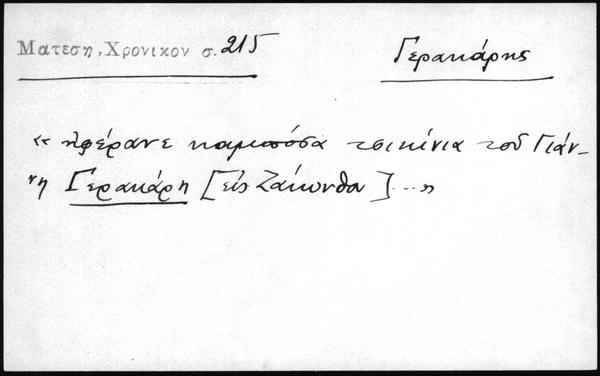 Ματεση, Χρονικον σ. 215
Γερακάρης
« ἠφέρανε καμπόσα τσικίνια τοῦ Γιάν-
νη Γερακάρη [εἰς Ζάκυνθο] ... »